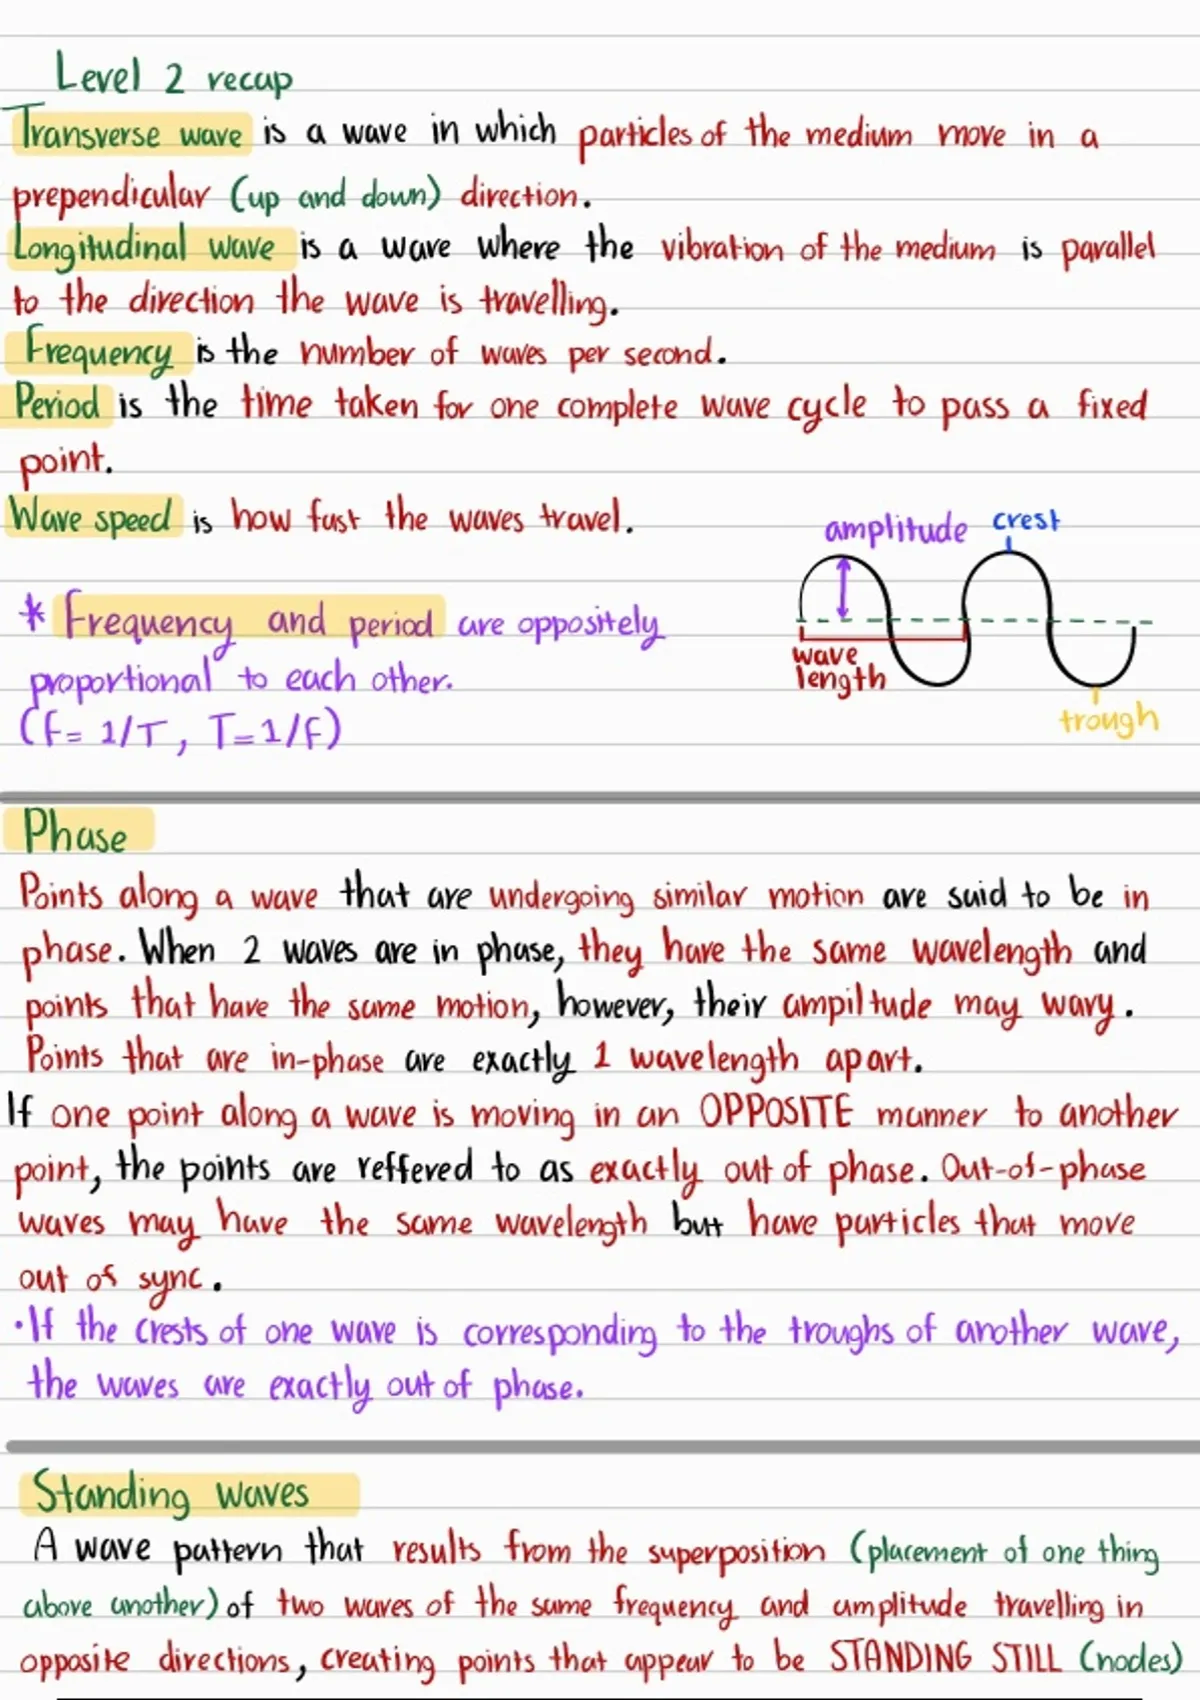 Level 2 recap
Transverse wave is a wave in which particles of the medium move in a
prependicular (up and down) direction.
Longitudinal wave is a wave where the vibration of the medium is parallel
to the direction the wave is travelling.
Frequency is the number of waves per second.
Period is the time taken for one complete wave cycle to pass a fixed
point.
Wave speed is how fast the waves travel.
amplitude crest
* Frequency and period are oppositely
proportional to each other.
(f= 1/T, T=1/f)
wave
length
trough
Phase
Points along a wave that are undergoing similar motion are said to be in
phase. When 2 waves are in phase, they have the same wavelength and
points that have the same motion, however, their ampiltude may wary.
Points that are in-phase are exactly 1 wavelength apart.
If one point along a wave is moving in an OPPOSITE manner to another
point, the points are reffered to as exactly out of phase. Out-of-phase
waves may have the same wavelength but have particles that move
out of sync.
•If the crests of one wave is corresponding to the troughs of another wave,
the waves are exactly out of phase.
Standing waves
A wave pattern that results from the superposition (placement of one thing
above another) of two waves of the same frequency and amplitude travelling in
opposite directions, creating points that appear to be STANDING STILL (nodes)